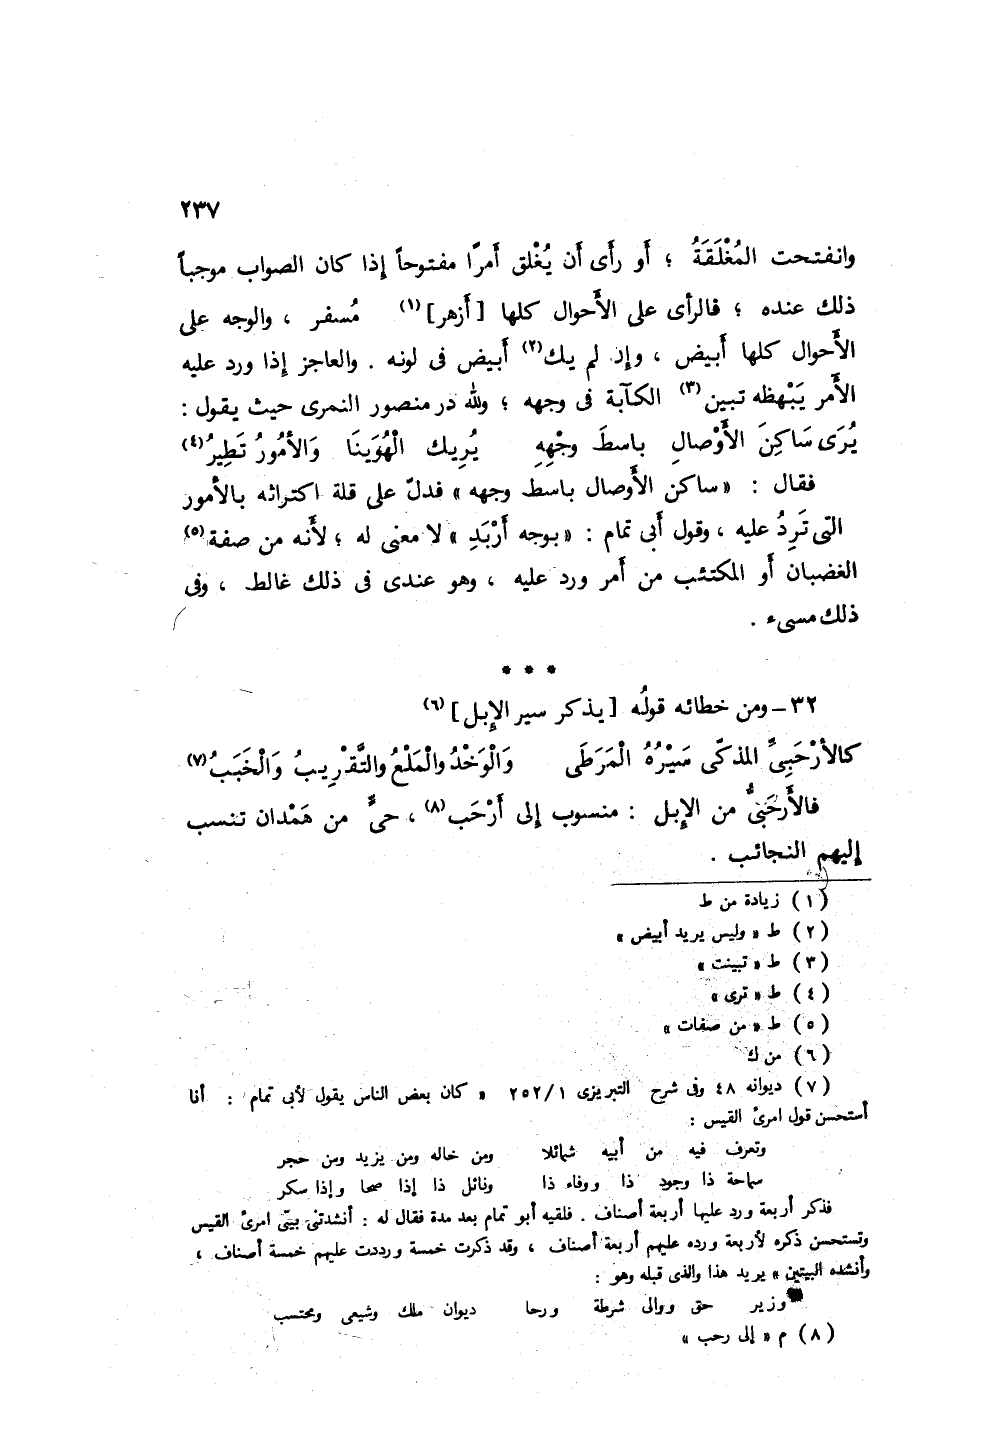 ٢٣٧
وانفتحت المُغْلَقَةُ ؛ أَو رأَى أَن يُغْلق أَمرًا مفتوحاً إذا كان الصواب موجباً
ذلك عنده ؛ فالرأى على الأَحوال كلها [ أَزهر ] (١) مُسفر ، والوجه على
الأَحوال كلها أَبيض ، وإن لم يك(٢) أَبيض فى لونه . والعاجز إذا ورد عليه
الأَمر يَبْهظه تبين(٣) الكآبة فى وجهه ؛ ولله در منصور النمرى حيث يقول :
يُرَى سَاكِنَ الأَوْصالِ باسطَ وجْهِهِ يُرِيك الْهُوَينَا وَالأُمُورُ تَطِيرُ(٤)
فقال : « ساكن الأَوصال باسط وجهه » فدلّ على قلة اكتراثه بالأمور
التى تَرِدُ عليه ، وقول أبى تمام : « بوجه أَرْبَدِ » لا معنى له ؛ لأَنه من صفة(٥)
الغضبان أَو المكتئب من أَمر ورد عليه ، وهو عندى فى ذلك غالط ، وفى
ذلك مسىء .
* * *
٣٢ – ومن خطائه قولُه [ يذكر سير الإِبل ] (٦)
كالأَرْحَبِىِّ المذكّى سَيْرُهُ الْمَرَطَى وَالْوَخْدُ والْمَلْعُ والتَّقْرِيبُ وَالْخَبَبُ(٧)
فالأَرحَبىُّ من الإِبل : منسوب إلى أَرْحَب(٨) ، حىٌّ من هَمْدان تنسب
إليهم النجائب .
(١) زيادة من ط
(٢) ط « وليس يريد أبيض »
(٣) ط « تبينت »
(٤) ط « ترى »
(٥) ط « من صفات »
(٦) من ك
(٧) ديوانه ٤٨ وفى شرح التبريزى ١/٢٥٢ « كان بعض الناس يقول لأبى تمام : أنا
أستحسن قول امرئ القيس :
وتعرف فيه من أبيه شمائلا ومن خاله ومن يزيد ومن حجر
سماحة ذا وجود ذا ووفاء ذا ونائل ذا إذا صحا وإذا سكر
فذكر أربعة ورد عليها أربعة أصناف . فلقيه أبو تمام بعد مدة فقال له : أنشدتنى بيتى امرئ القيس
وتستحسن ذكره لأربعة ورده عليهم أربعة أصناف ، وقد ذكرت خمسة ورددت عليهم خمسة أصناف ،
وأنشده البيتين » يريد هذا والذى قبله وهو :
وزير حق ووالى شرطة ورحا ديوان ملك وشيعى ومحتسب
(٨) م « إلى رحب »